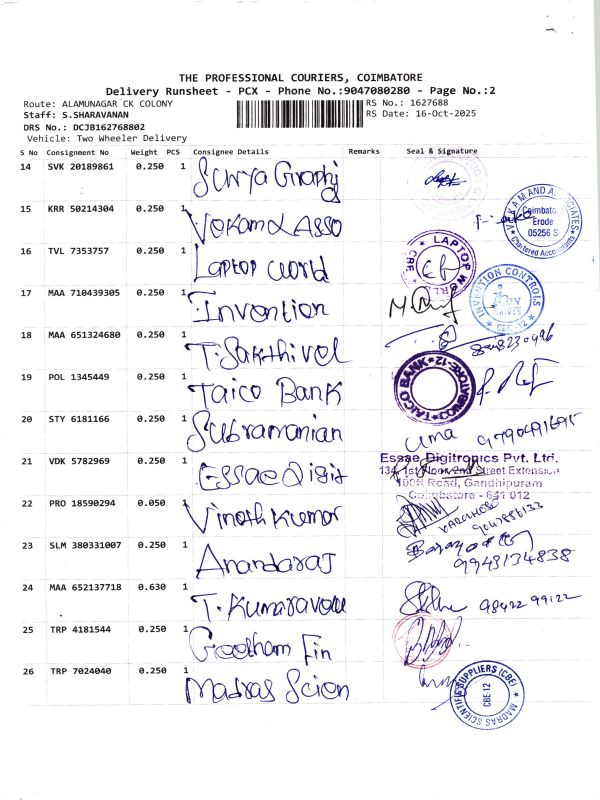 THE PROFESSIONAL COURIERS, COIMBATORE
Delivery Runsheet - PCX - Phone No.:9047080280 - Page No.:2
Route: ALAMUNAGAR CK COLONY RS No.: 1627688
Staff: S.SHARAVANAN RS Date: 16-Oct-2025
DRS No.: DCJB162768802
Vehicle: Two Wheeler Delivery
S No Consignment No Weight PCS Consignee Details Remarks Seal & Signature
14 SVK 20189861 0.250 1 Surya Graphi
15 KRR 50214304 0.250 1 Vekam & Asso
VEKAM AND ASSOCIATES Coimbatore Erode 05256 S Chartered Accountants
16 TVL 7353757 0.250 1 Laptop world
LAPTOP WORLD CBE
17 MAA 710439305 0.250 1 Invention
INVENTION CONTROLS DRIVES CBE-12
18 MAA 651324680 0.250 1 T. Sakthivel
19 POL 1345449 0.250 1 Taico Bank
TAICO BANK COIMBATORE-12
20 STY 6181166 0.250 1 Subramanian
uma
21 VDK 5782969 0.250 1 Essae Digit
Essae Digitronics Pvt. Ltd.
134, 1st Floor, 2nd Street Extension
100ft Road, Gandhipuram
Coimbatore - 641 012
22 PRO 18590294 0.050 1 Vinoth Kumar
23 SLM 380331007 0.250 1 Anandaraj
9943134838
24 MAA 652137718 0.630 1 T. Kumaravelu
98422 99122
25 TRP 4181544 0.250 1 Gootham Fin
26 TRP 7024040 0.250 1 Madras Scien
MADRAS SCIENTIFIC SUPPLIERS (CBE) CBE-12